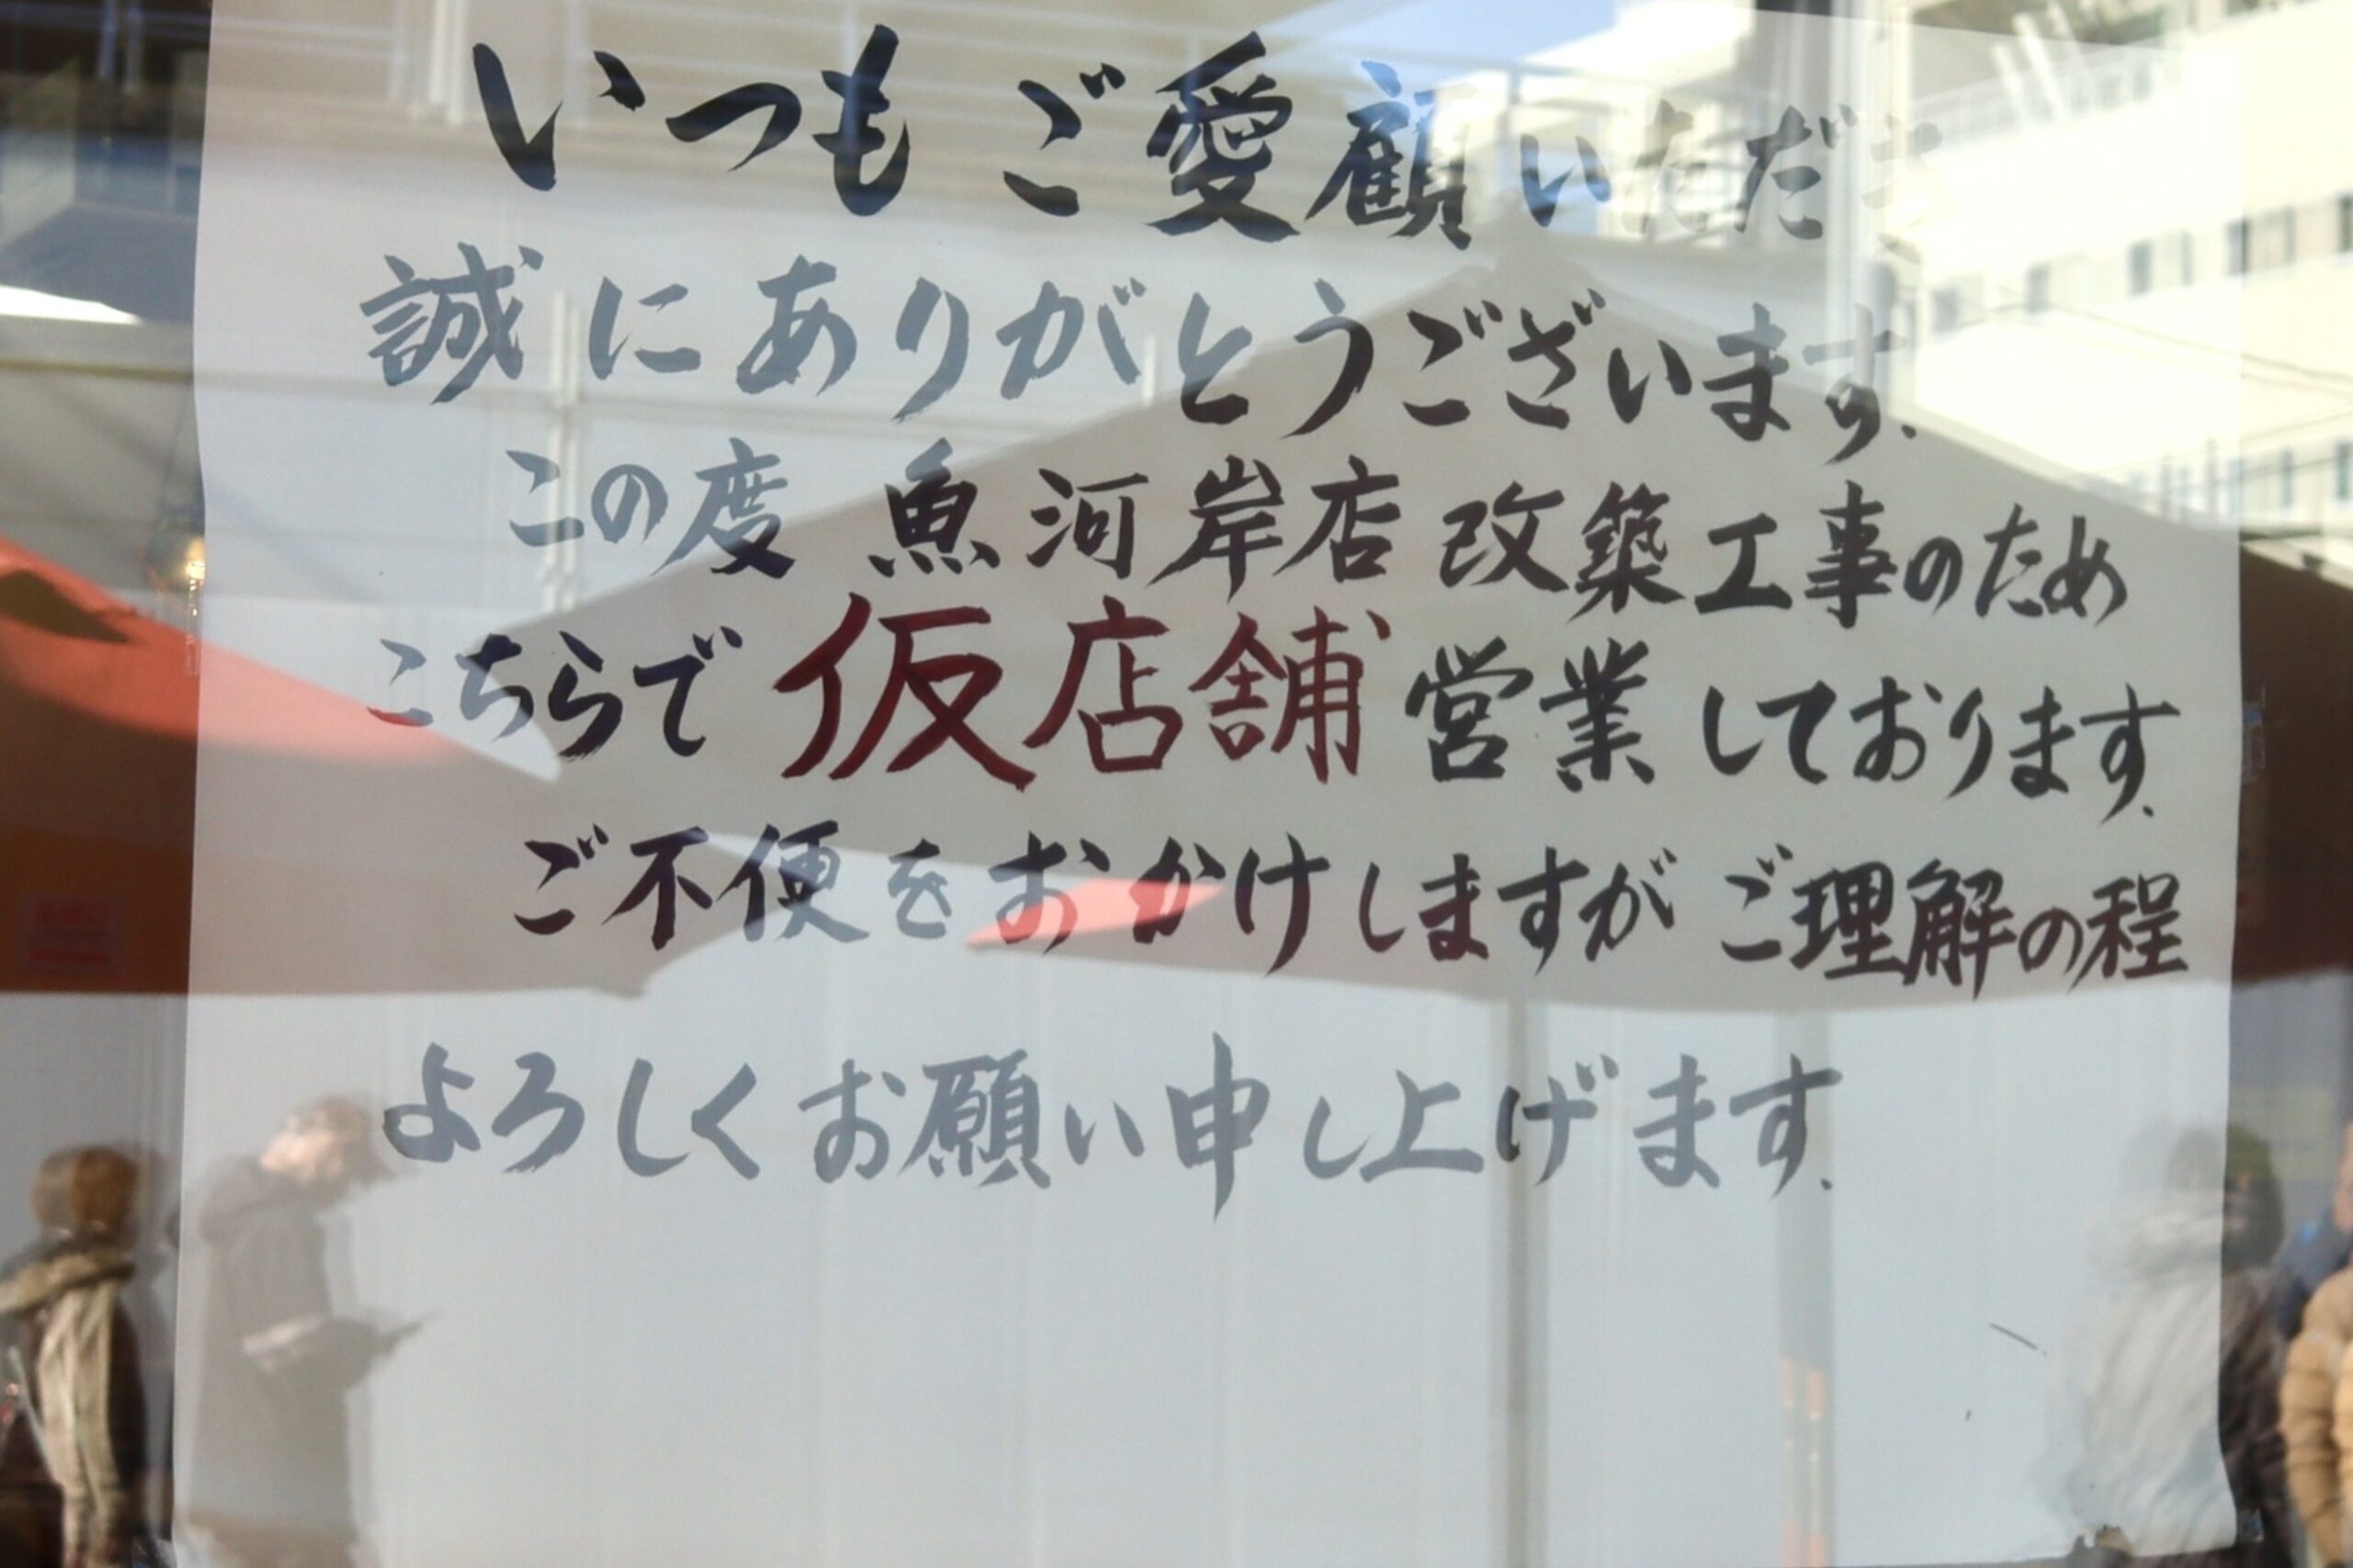 いつもご愛顧いただき
誠にありがとうございます.
この度 魚河岸店 改築工事のため
こちらで仮店舗営業しております.
ご不便をおかけしますが ご理解の程
よろしくお願い申し上げます.